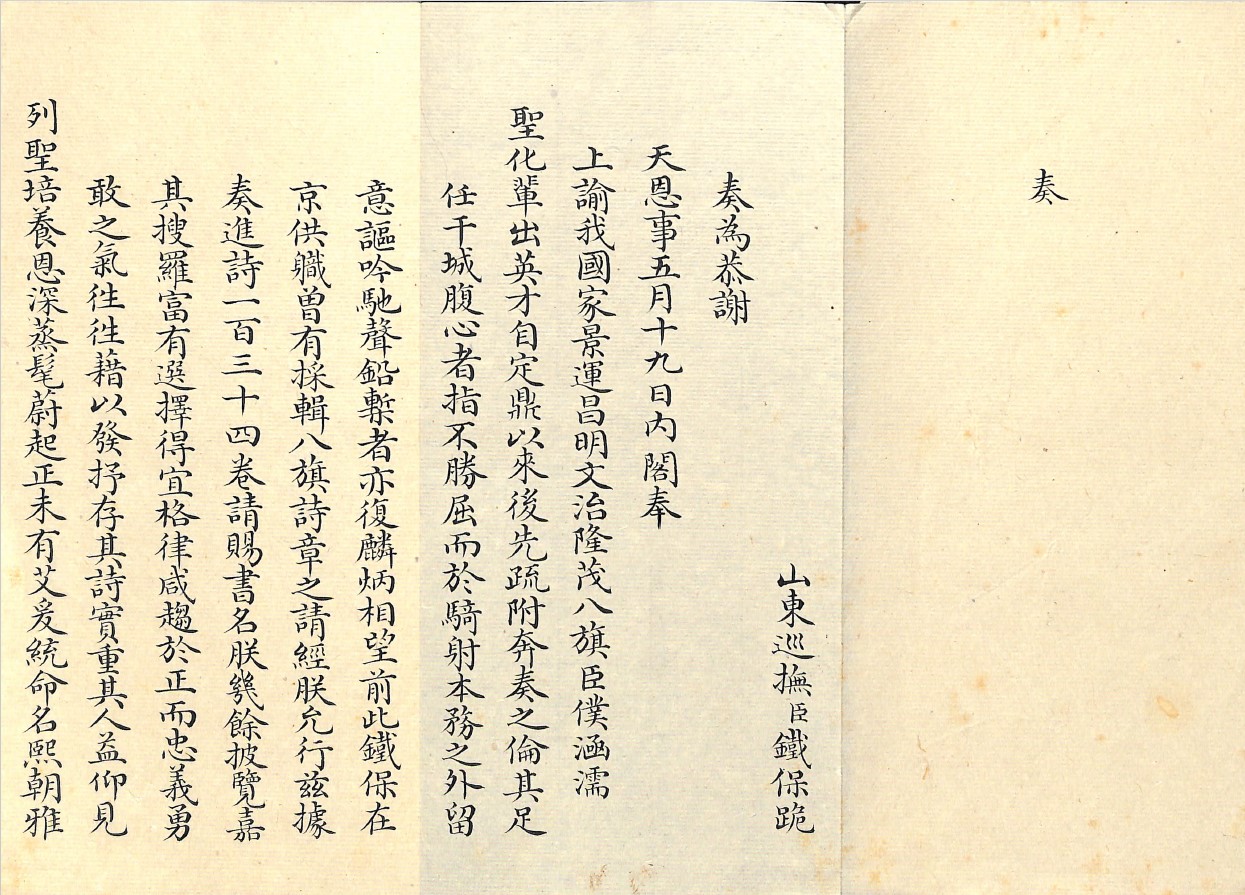 奏
山東巡撫臣鐵保跪
奏為恭謝
天恩事五月十九日内閣奉
上諭我國家景運昌明文治隆茂八旗臣僕涵濡
聖化輩出英才自定鼎以來後先疏附奔奏之倫其足
任干城腹心者指不勝屈而於騎射本務之外留
意謳吟馳聲鉛槧者亦復麟炳相望前此鐵保在
京供職曾有採輯八旗詩章之請經朕允行兹據
奏進詩一百三十四卷請賜書名朕幾餘披覽嘉
其搜羅富有選擇得宜格律咸趨於正而忠義勇
敢之氣往往藉以發抒存其詩實重其人益仰見
列聖培養恩深蒸髦蔚起正未有艾爰統命名熙朝雅